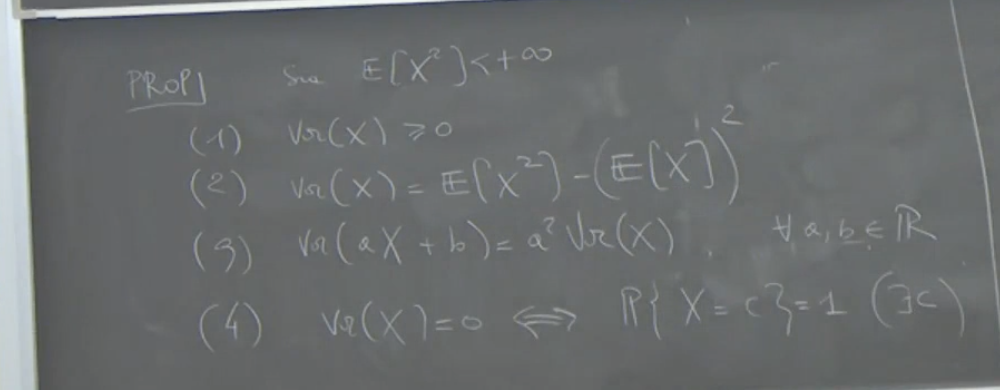 PROP] Sia E[X²]<+∞
(1) Var(X) ⩾ 0
(2) Var(X) = E[X²] - (E[X])²
(3) Var(aX + b) = a² Var(X), ∀ a, b ∈ ℝ
(4) Var(X) = 0 ⟺ ℙ{X = c} = 1 (∃c)